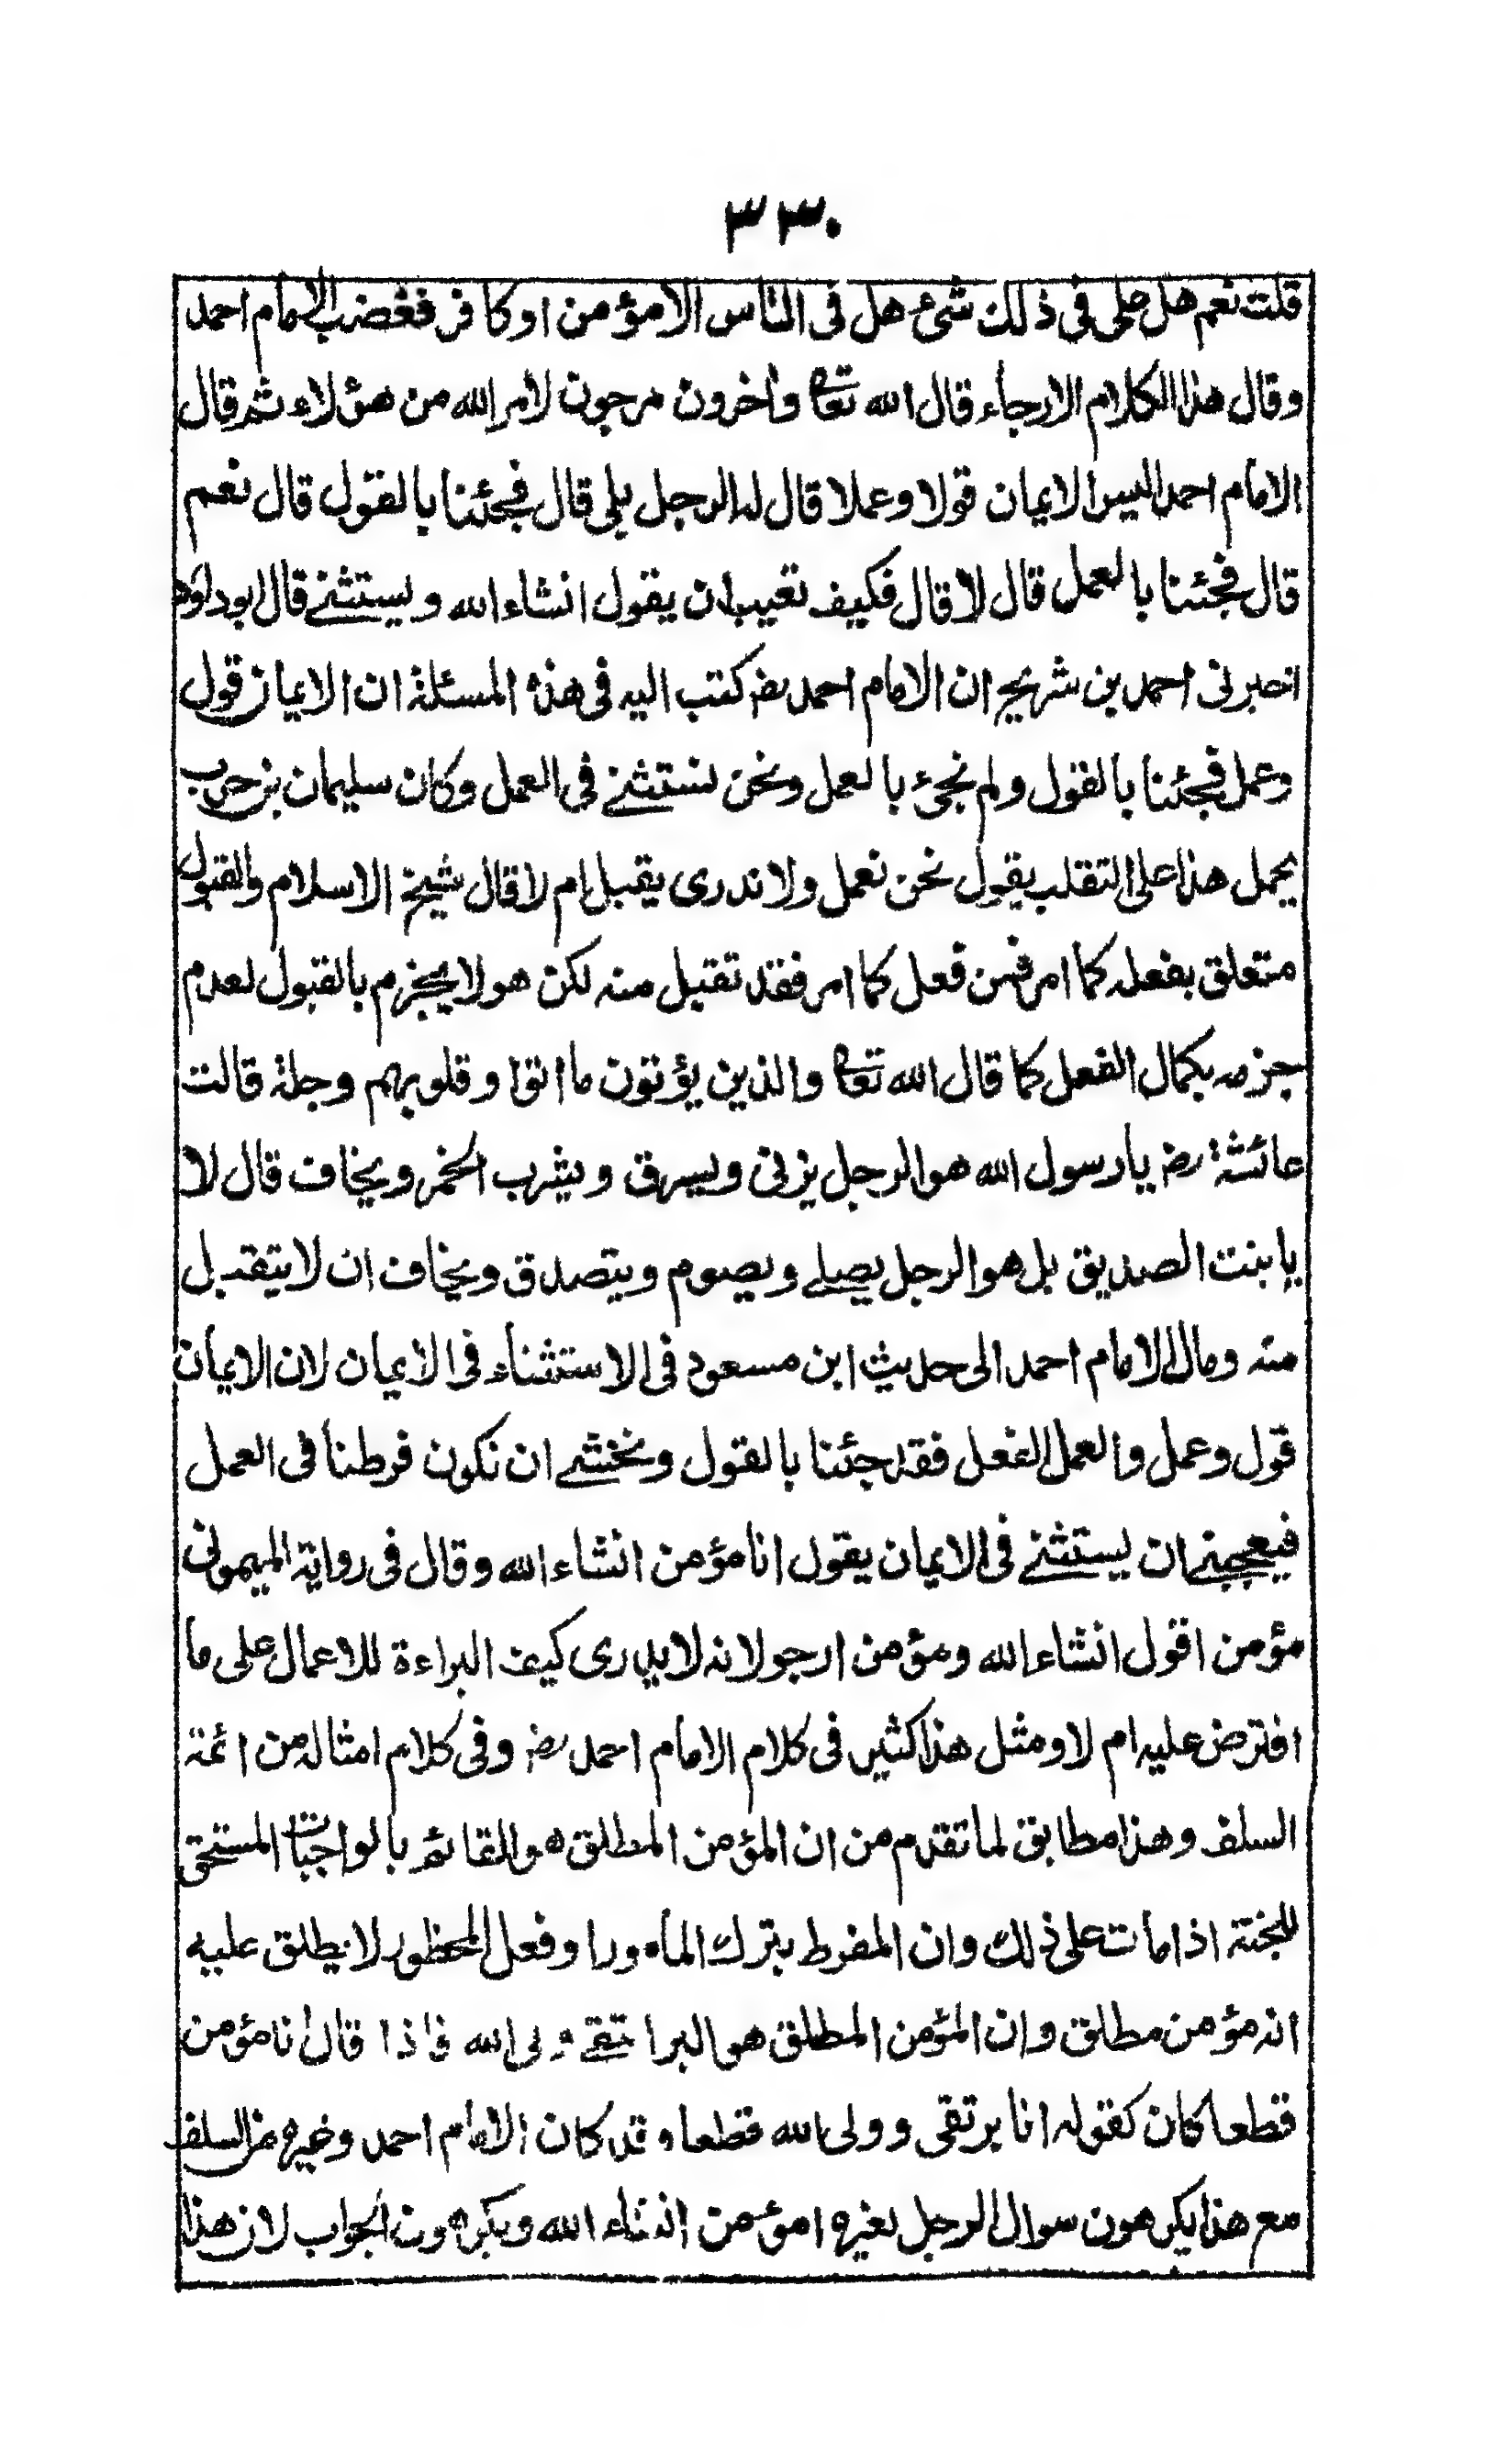 ٣٣٠
قلت نعم هل على فى ذلك شئ هل فى الناس الا مؤمن او كافر فغضب الامام احمد
وقال هذا الكلام الارجاء قال الله تعا واخرون مرجون لامر الله من هؤلاء ثم قال
الامام احمد اليس الايمان قولا وعملا قال له الرجل بلى قال فجئنا بالقول قال نعم
قال فجئنا بالعمل قال لا قال فكيف تعيب ان يقول انشاء الله ويستثنے قال ابو داود
اخبرنى احمد بن شريح ان الامام احمد رضـ كتب اليه فى هذه المسئلة ان الايمان قول
وعمل فجئنا بالقول ولم نجئ بالعمل ونحن نستثنے فى العمل وكان سليمان بن حرب
يحمل هذا على التقلب يقول نحن نعمل ولا ندرى يقبل ام لا قال شيخ الاسلام والقبول
متعلق بفعله كما امر فمن فعل كما امر فقد تقبل منه لكن هو لا يجزم بالقبول لعدم
جزمه بكمال الفعل كما قال الله تعا والذين يؤتون ما اتوا وقلوبهم وجلة قالت
عائشة رضـ يا رسول الله هو الرجل يزنى ويسرق ويشرب الخمر ويخاف قال لا
يا بنت الصديق بل هو الرجل يصلے ويصوم ويتصدق ويخاف ان لا يتقبل
منه ومال الامام احمد الى حديث ابن مسعود فى الاستثناء فى الايمان لان الايمان
قول وعمل والعمل الفعل فقد جئنا بالقول ونخشے ان نكون فرطنا فى العمل
فيعجبنے ان يستثنے فى الايمان يقول انا مؤمن انشاء الله وقال فى رواية الميمونى
مؤمن اقول انشاء الله ومؤمن ارجو لانه لا يدرى كيف البراءة للاعمال على ما
افترض عليه ام لا ومثل هذا كثير فى كلام الامام احمد رضـ وفى كلام امثاله من ائمة
السلف وهذا مطابق لما تقدم من ان المؤمن المطلق هو القائم بالواجبات المستحق
للجنة اذا مات على ذلك وان المفرط بترك المأمور او فعل المحظور لا يطلق عليه
انه مؤمن مطلق وان المؤمن المطلق هو البر التقے ولى الله فاذا قال انا مؤمن
قطعا كان كقوله انا بر تقى وولى الله قطعا وقد كان الامام احمد وغيره من السلف
مع هذا يكرهون سوال الرجل لغيره امؤمن انشاء الله ويكرهون الجواب لان هذا